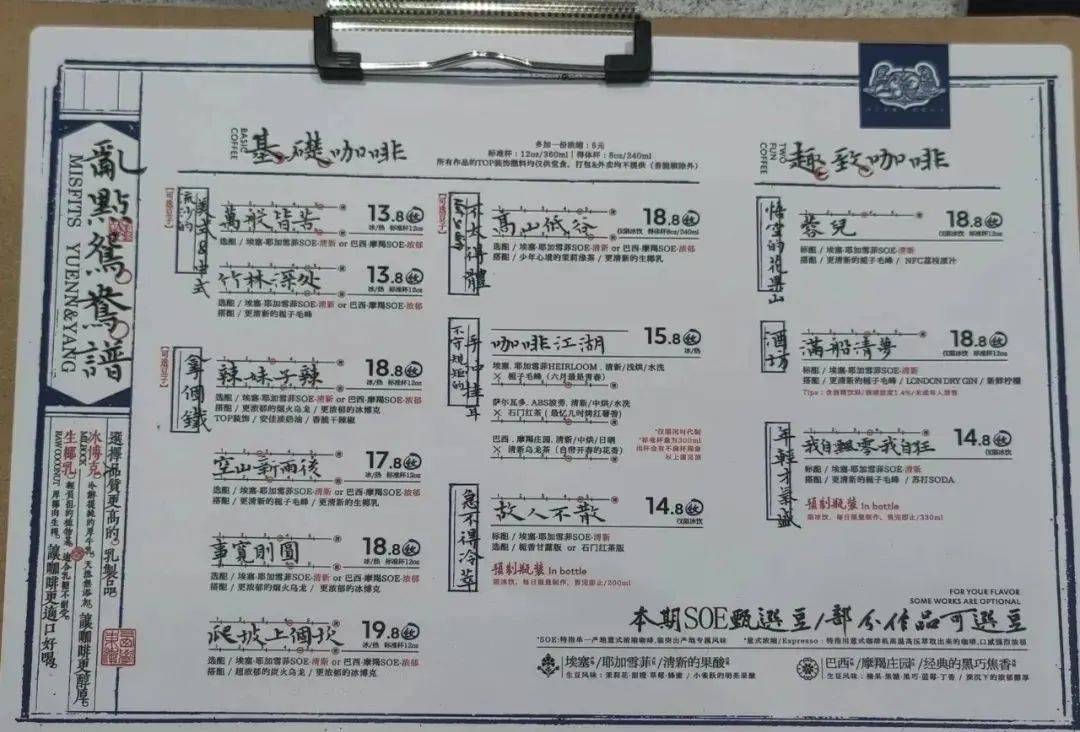 亂點鴛鴦譜
MISFITS YUENN&YANG
選擇品質更高的乳製品
冰博克
MILBROCK
生椰乳
RAW COCONUT
讓咖啡更醇厚
讓咖啡更適口好喝
BASIC COFFEE
基礎咖啡
多加一份浓缩:5元
标准杯:12oz/360ml | 得体杯:8oz/240ml
所有作品的TOP装饰撒料均仅供堂食,打包&外卖均不提供(香脆椒除外)
【可选豆子】
萬般皆苦 13.8
冰/热 标准杯12oz
选配 / 埃塞·耶加雪菲SOE·清新 or 巴西·摩羯SOE·浓郁
竹林深处 13.8
冰/热 标准杯12oz
选配 / 埃塞·耶加雪菲SOE·清新 or 巴西·摩羯SOE·浓郁
搭配 / 更清新的栀子毛峰
【可选豆子】
拿個鐵
辣妹子辣 18.8
冰/热 标准杯12oz
选配 / 埃塞·耶加雪菲SOE·清新 or 巴西·摩羯SOE·浓郁
搭配 / 更浓郁的烟火乌龙 / 更浓郁的冰博克
TOP装饰 / 安佳淡奶油 / 香脆干辣椒
空山新雨後 17.8
冰/热 标准杯12oz
选配 / 埃塞·耶加雪菲SOE·清新 or 巴西·摩羯SOE·浓郁
搭配 / 更清新的栀子毛峰 / 更清新的生椰乳
事寬則圓 18.8
冰/热 标准杯12oz
选配 / 埃塞·耶加雪菲SOE·清新 or 巴西·摩羯SOE·浓郁
搭配 / 更浓郁的烟火乌龙 / 更浓郁的冰博克
爬坡上個坎 19.8
冰/热 标准杯12oz
选配 / 埃塞·耶加雪菲SOE·清新 or 巴西·摩羯SOE·浓郁
搭配 / 超浓郁的炭火乌龙 / 更浓郁的冰博克
【可选豆子】
不太得體
高山低谷 18.8
仅限冰饮 得体杯8oz/240ml
选配 / 埃塞·耶加雪菲SOE·清新 or 巴西·摩羯SOE·浓郁
搭配 / 少年心境的茉莉绿茶 / 更清新的生椰乳
不守规矩的
手中挂耳
咖啡江湖 15.8
冰/热
埃塞.耶加雪菲HEIRLOOM.清新/浅烘/水洗
× 栀子毛峰(六月最是青春)
萨尔瓦多.ABS波旁.清新/中烘/水洗
× 石门红茶(最忆儿时烤红薯香)
巴西.摩羯庄园.清新/中烘/日晒
× 清新乌龙茶(自带开春的花香)
*仅限闲时代制
*标准杯量为300ml
急不得冷萃
故人不散 14.8
仅限冰饮
标配 / 埃塞·耶加雪菲SOE·清新
选配 / 栀香甘露版 or 石门红茶版
預制瓶裝 In bottle
限冰饮,每日限量制作,售完即止/200ml
TWO FUN COFFEE
趣致咖啡
悟空的花果山
蓉兒 18.8
仅限冰饮 标准杯12oz
标配 / 埃塞·耶加雪菲SOE·清新
搭配 / 更清新的栀子毛峰 / NFC荔枝原汁
酒坊
滿船清夢 18.8
仅限冰饮 标准杯12oz
标配 / 埃塞·耶加雪菲SOE·清新
搭配 / 更清新的栀子毛峰 / LONDON DRY GIN / 新鲜柠檬
年輕才氣盛
我自飄零我自狂 14.8
仅限冰饮 标准杯12oz
标配 / 埃塞·耶加雪菲SOE·清新
搭配 / 更清新的栀子毛峰 / 苏打SODA
預制瓶裝 In bottle
限冰饮,每日限量制作,售完即止/330ml
FOR YOUR FLAVOR
SOME WORKS ARE OPTIONAL
本期SOE甄選豆/部分作品可選豆
*SOE:特指单一产地意式浓缩咖啡,强突出产地专属风味 *意式浓缩/Espresso:特指用意式咖啡机高温高压萃取出来的咖啡,口感强烈浓郁
埃塞/耶加雪菲/清新的果酸
生豆风味:茉莉花·甜橙·草莓·蜂蜜 / 小雀跃的明亮果酸
巴西/摩羯庄园/经典的黑巧焦香
生豆风味:榛果·焦糖·黑巧·蓝莓·丁香 / 深沉下的浓郁醇厚